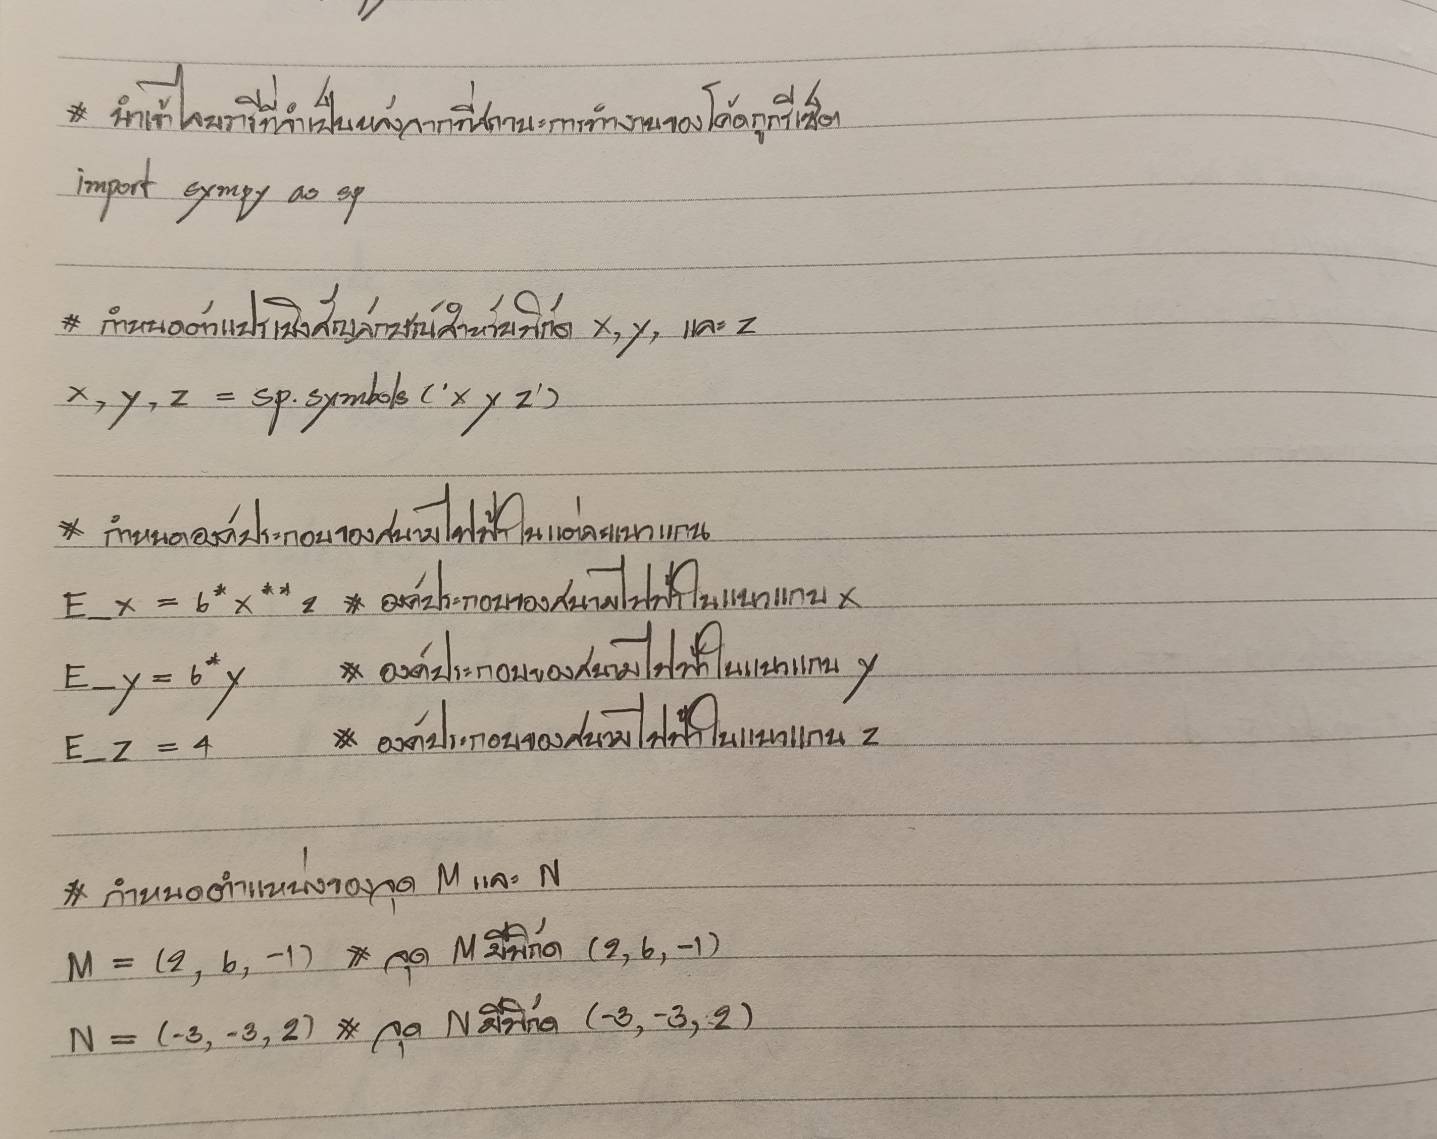 # นำเข้าไลบรารีที่จำเป็นหลังจากที่สถานะการทำงานของโค้ดถูกรีเซ็ต
import sympy as sp
# กำหนดตัวแปรเชิงสัญลักษณ์สำหรับพิกัด x, y, และ z
x, y, z = sp.symbols('x y z')
# กำหนดองค์ประกอบของสนามไฟฟ้าในแต่ละแนวแกน
E_x = 6*x**2 # องค์ประกอบของสนามไฟฟ้าในแนวแกน x
E_y = 6*y # องค์ประกอบของสนามไฟฟ้าในแนวแกน y
E_z = 4 # องค์ประกอบของสนามไฟฟ้าในแนวแกน z
# กำหนดตำแหน่งของจุด M และ N
M = (2, 6, -1) # จุด M มีพิกัด (2, 6, -1)
N = (-3, -3, 2) # จุด N มีพิกัด (-3, -3, 2)